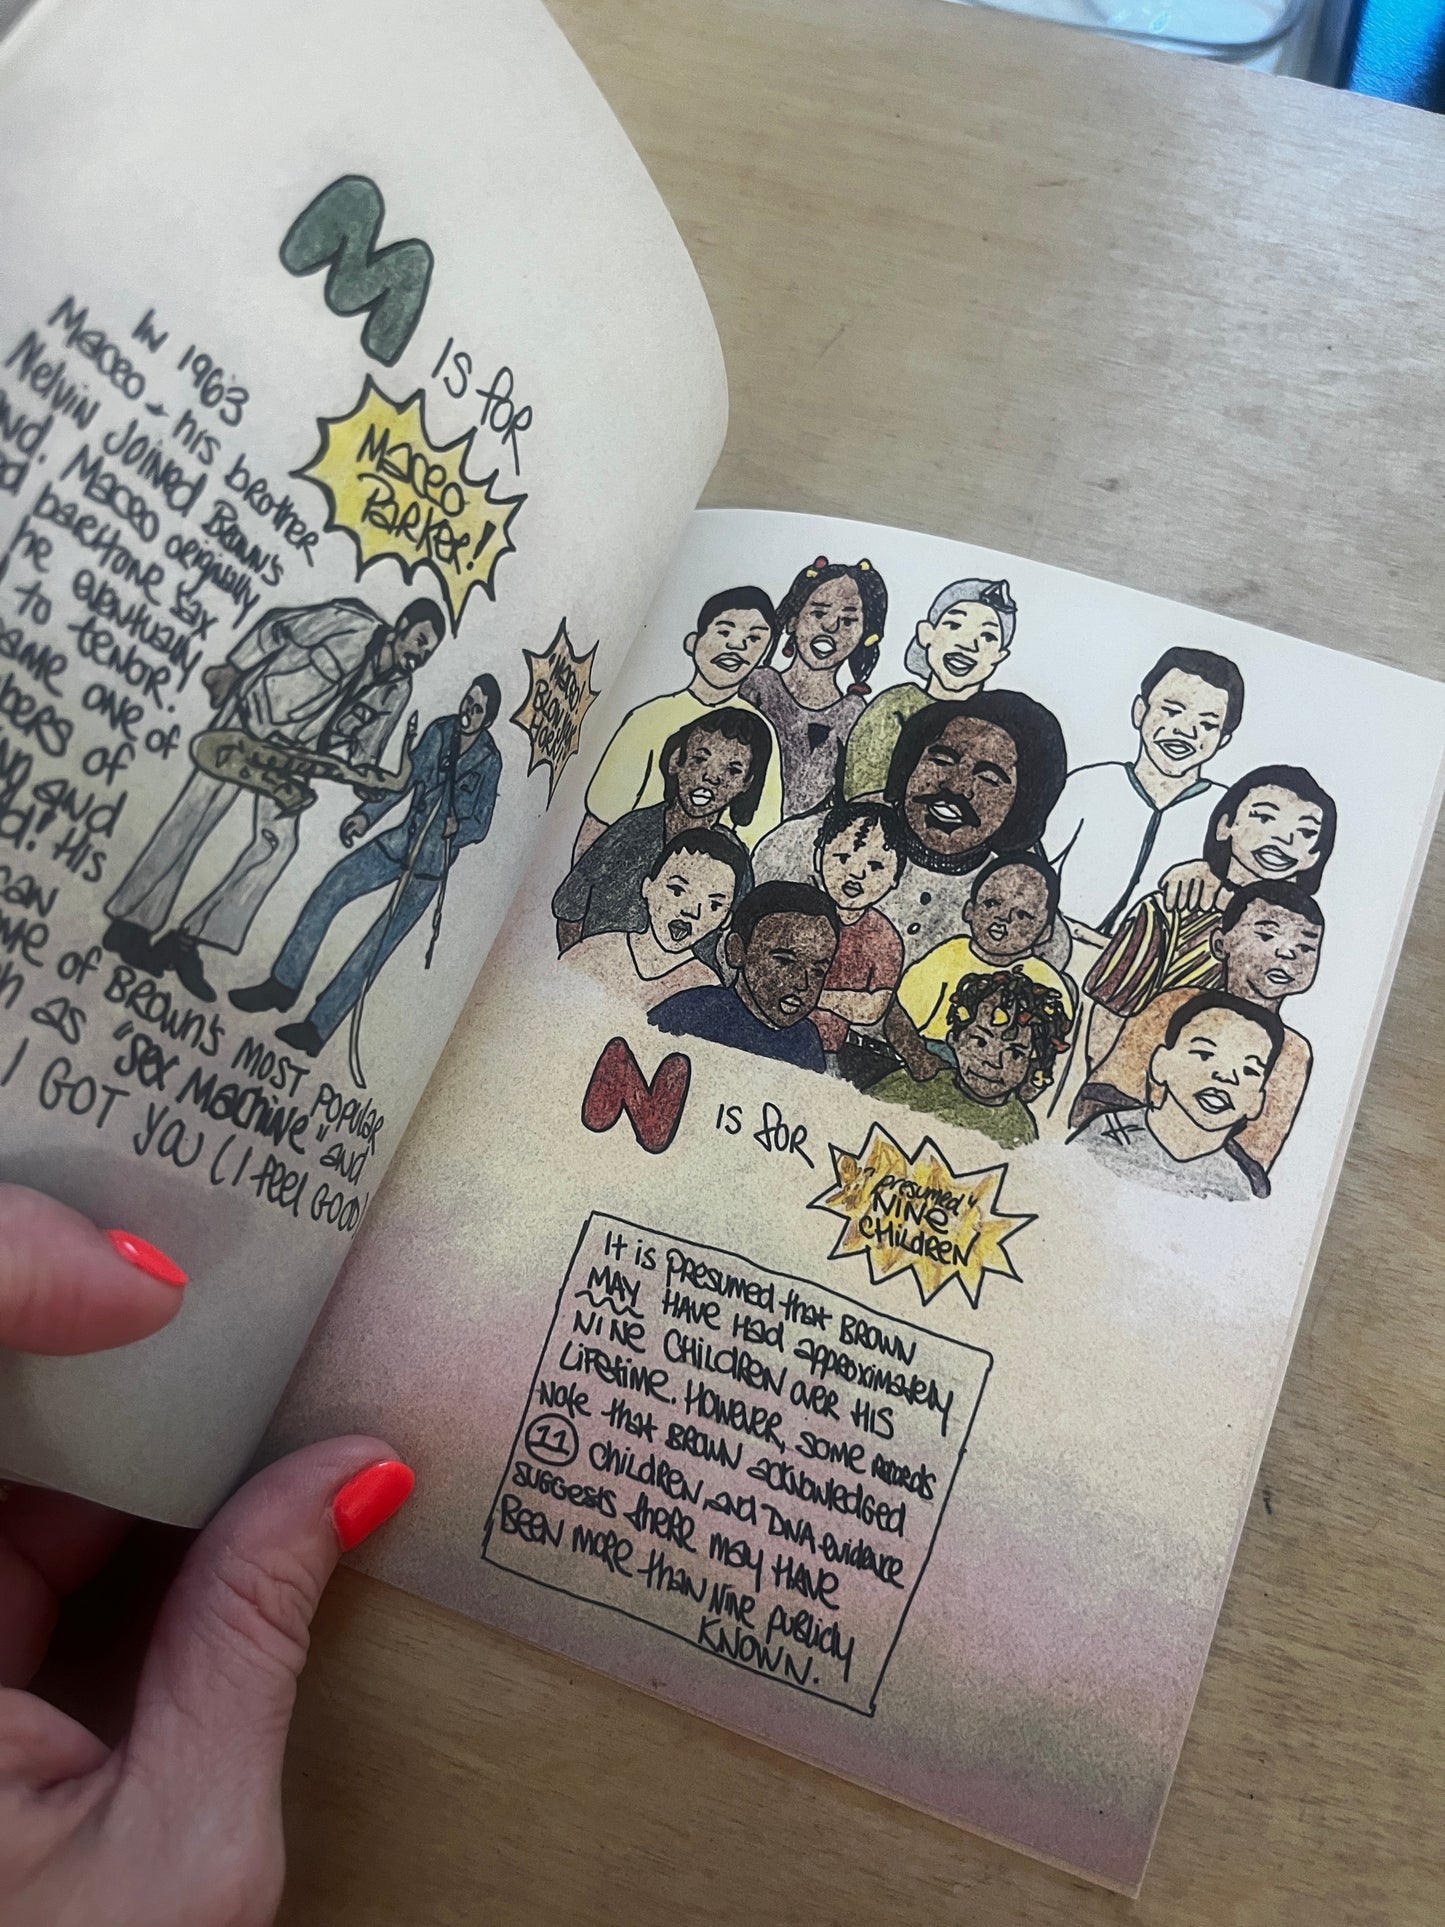 M
is for
Maceo
Parker!
In 1963
Maceo + his brother
Melvin joined Brown's
Maceo originally
baritone sax
he eventually
to tenor!
one of
of
and
! His
can
of Brown's most popular
as "Sex Machine" and
I GOT YOU (I feel GOOD)
"Maceo!
Blow your
Horn!"
N
is for
"presumed"
NINE
CHILDREN
It is presumed that BROWN
MAY HAVE Had approximately
NINE CHILDREN over HIS
Lifetime. However, some records
Note that BROWN acknowledged
11 children, and DNA evidence
suggests there may HAVE
BEEN more than Nine publicly
KNOWN.